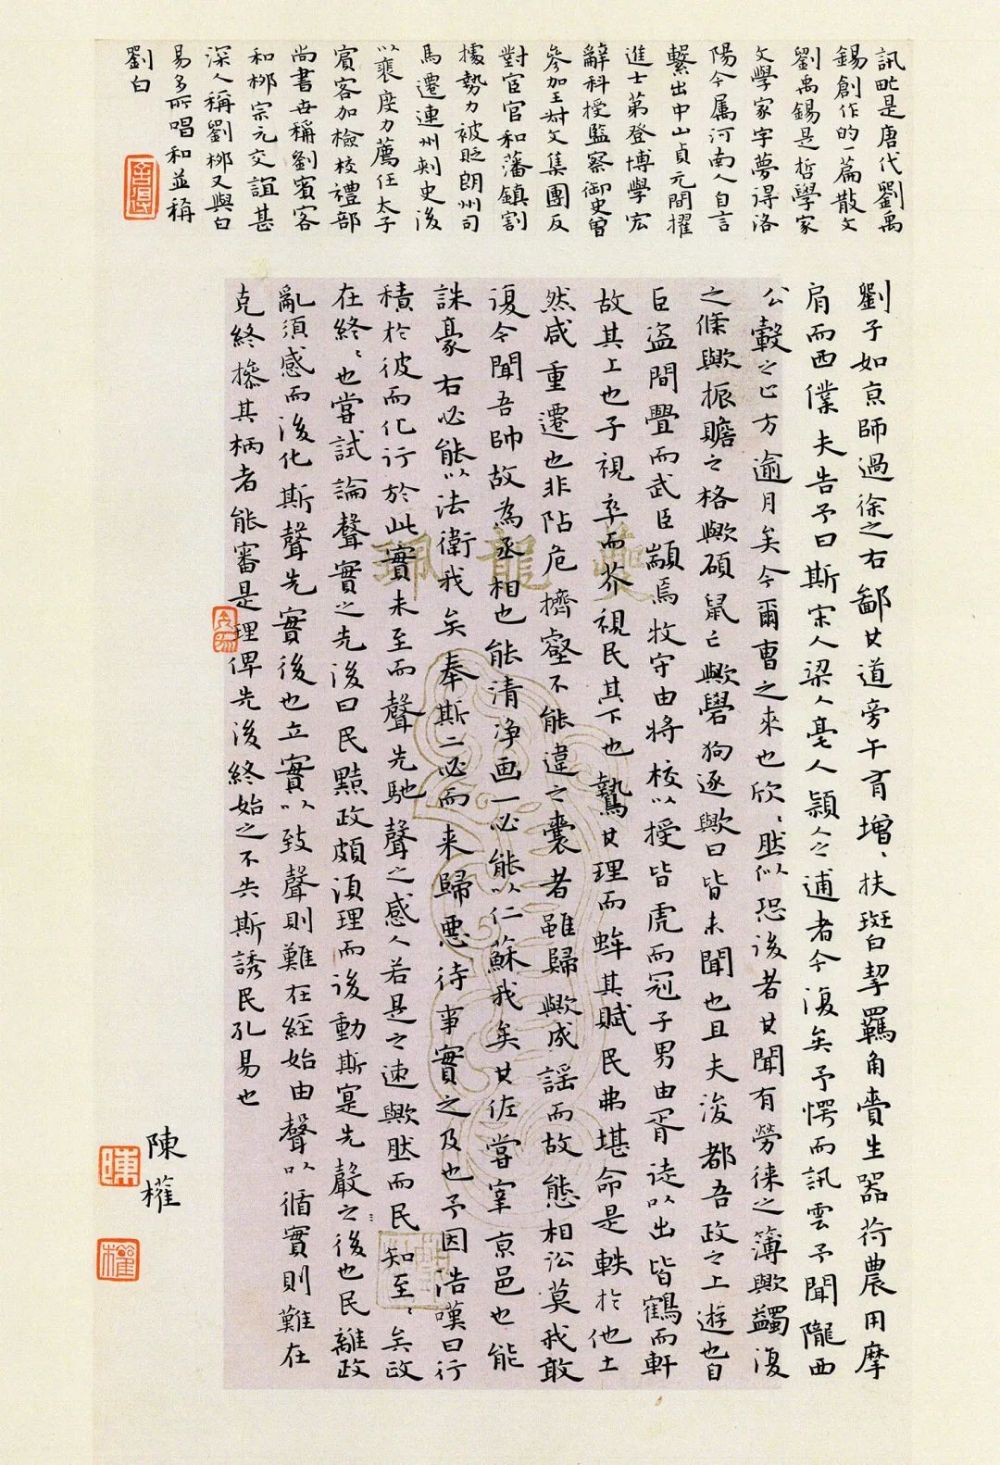 訊甿是唐代劉禹
錫創作的一篇散文
劉禹錫是哲學家
文學家字夢得洛
陽今属河南人自言
繫出中山貞元間擢
進士第登博學宏
辭科授監察御史曾
參加王叔文集團反
對宦官和藩鎮割
據勢力被貶朗州司
馬遷連州刺史後
以裴度力薦任太子
賓客加檢校禮部
尚書世稱劉賓客
和柳宗元交誼甚
深人稱劉柳又與白
易多所唱和並稱
劉白
劉子如京師過徐之右鄙其道旁午有增〻扶斑白挈羈角賷生器荷農用摩
肩而西僕夫告予曰斯宋人梁人亳人潁人之逋者今復矣予愕而訊雲予聞隴西
公轂之止方逾月矣今爾曹之來也欣〻然似恐後者其聞有勞徠之簿歟蠲復
之條歟振贍之格歟碩鼠亡歟猘狗逐歟曰皆未聞也且夫浚都吾政之上遊也自
巨盜間釁而武臣顓焉牧守由將校以授皆虎而冠子男由胥徒以出皆鶴而軒
故其上也子視卒而芥視民其下也鷙其理而蛑其賦民弗堪命是軼於他土
然咸重遷也非阽危擠壑不能違之曩者雖歸歟成謡而故態相訟莫我敢
復今聞吾帥故為丞相也能清净画一必能以仁蘇我矣其佐嘗宰京邑也能
誅豪右必能以法衛我矣奉斯二必而来歸悪待事實之及也予因浩嘆曰行
積於彼而化行於此實未至而聲先馳聲之感人若是之速歟然而民知至〻矣政
在終〻也嘗試論聲實之先後曰民黠政頗須理而後動斯寔先聲之後也民離政
亂須感而後化斯聲先實後也立實以致聲則難在經始由聲以循實則難在
克終操其柄者能審是理俾先後終始之不失斯誘民孔易也
陳權
陳
權